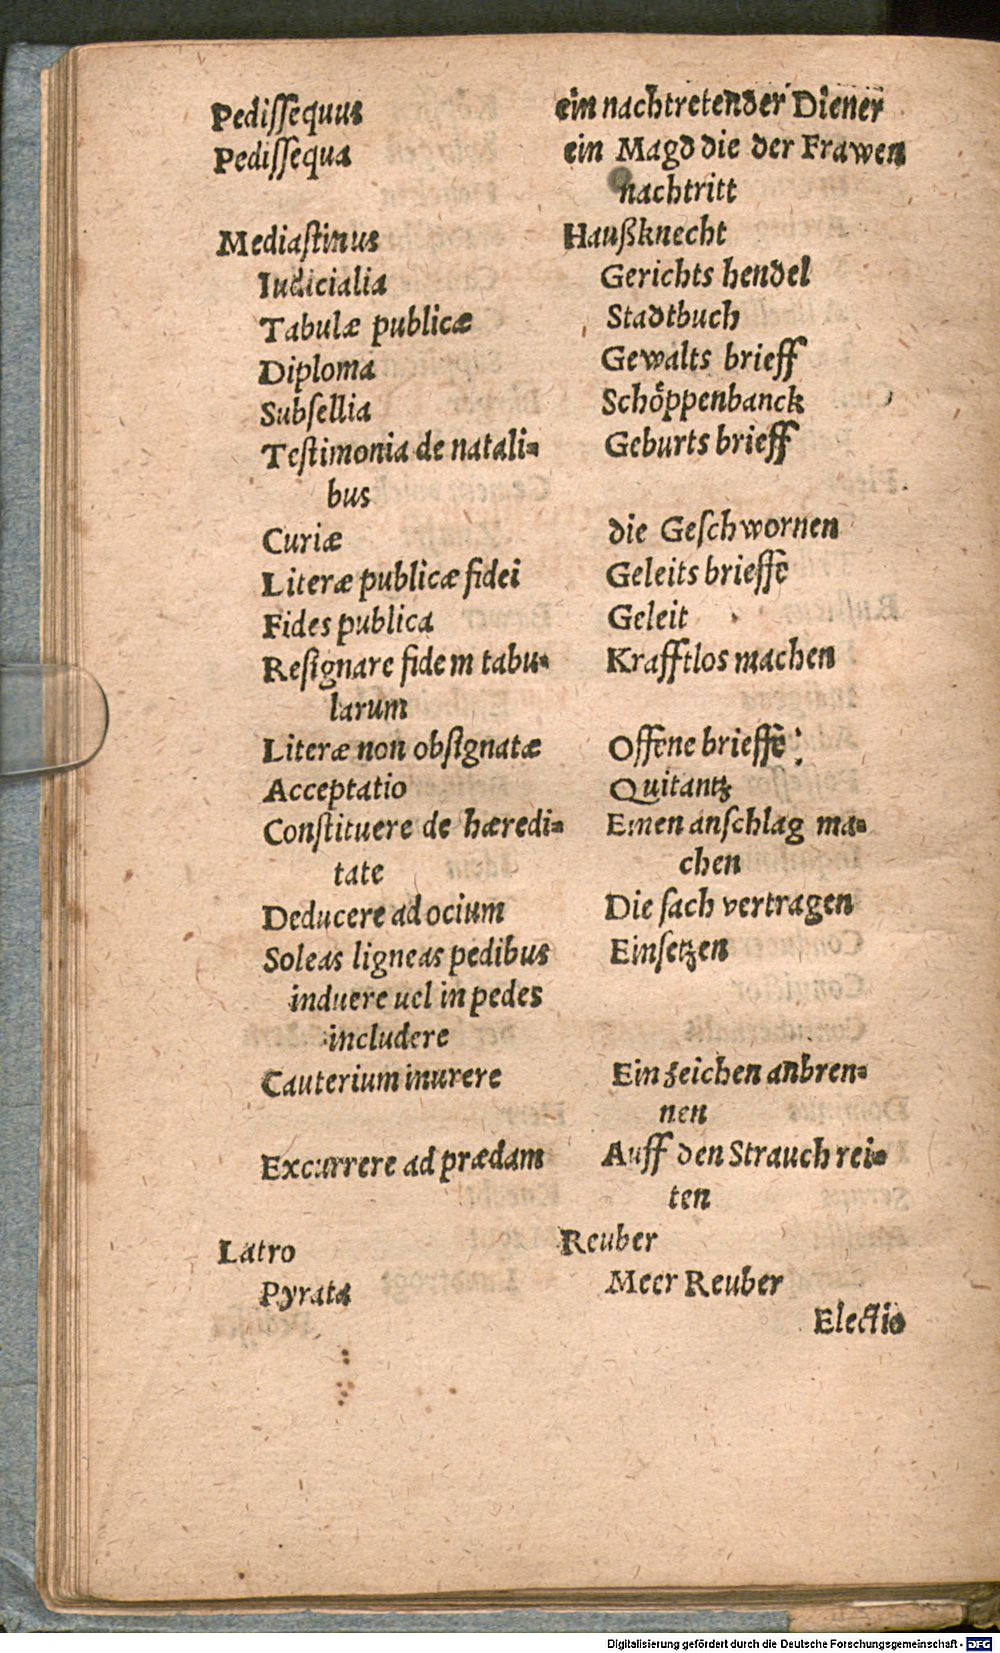 Pediſſequus ein nachtretender Diener
Pediſſequa ein Magd die der Frawen
nachtritt
Mediaſtinus Haußknecht
Iudicialia Gerichts hendel
Tabulæ publicæ Stadtbuch
Diploma Gewalts brieff
Subſellia Schoͤppenbanck
Teſtimonia de natali⸗ Geburts brieff
bus
Curiæ die Geſchwornen
Literæ publicæ fidei Geleits brieffe
Fides publica Geleit
Reſignare fidem tabu⸗ Krafftlos machen
larum
Literæ non obſignatæ Offene brieffe
Acceptatio Quitantz
Conſtituere de hæredi⸗ Einen anſchlag ma⸗
tate chen
Deducere ad ocium Die ſach vertragen
Soleas ligneas pedibus Einſetzen
induere uel in pedes
includere
Cauterium inurere Ein zeichen anbren⸗
nen
Excurrere ad prædam Auff den Strauch rei⸗
ten
Latro Reuber
Pyrata Meer Reuber
Electio
Digitalisierung gefördert durch die Deutsche Forschungsgemeinschaft - DFG